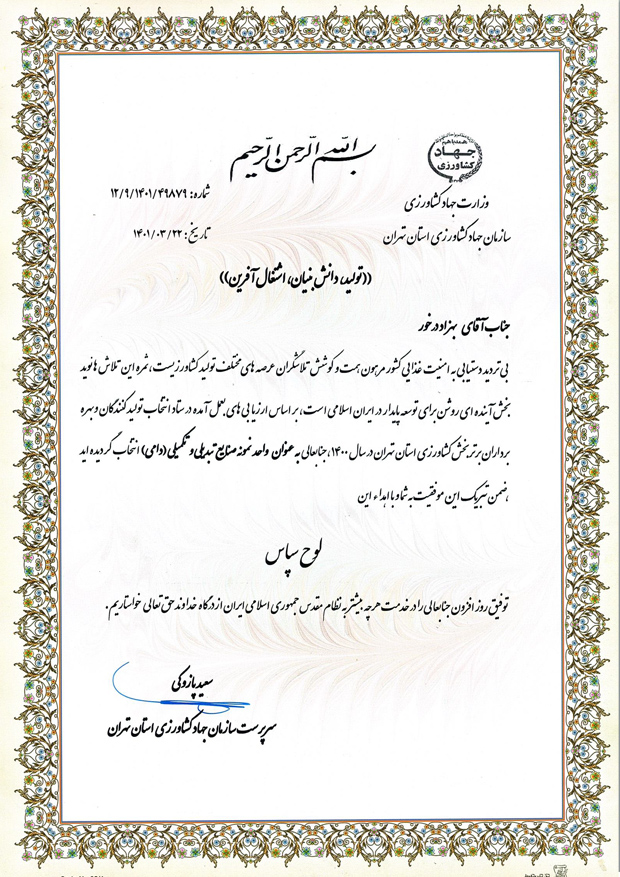 بسم الله الرحمن الرحیم
همه با هم
جهاد
کشاورزی
وزارت جهاد کشاورزی
سازمان جهاد کشاورزی استان تهران
شماره: ۱۲/۹/۱۴۰۱/۴۹۸۷۹
تاریخ: ۱۴۰۱/۰۳/۲۲
((تولید، دانش بنیان، اشتغال آفرین))
جناب آقای بهزاد درخور
بی تردید دستیابی به امنیت غذایی کشور مرهون همت و کوشش تلاشگران عرصه های مختلف تولید کشاورزیست، ثمره این تلاش ها نوید
بخش آینده ای روشن برای توسعه پایدار در ایران اسلامی است، بر اساس ارزیابی های بعمل آمده در ستاد انتخاب تولید کنندگان و بهره
برداران برتر بخش کشاورزی استان تهران در سال ۱۴۰۰، جنابعالی به عنوان واحد نمونه صنایع تبدیلی و تکمیلی (دامی) انتخاب گردیده اید
،ضمن تبریک این موفقیت به شما و با اهداء این
لوح سپاس
توفیق روز افزون جنابعالی را در خدمت هرچه بیشتر به نظام مقدس جمهوری اسلامی ایران از درگاه خداوند حق تعالی خواستاریم.
سعید پازوکی
سرپرست سازمان جهاد کشاورزی استان تهران